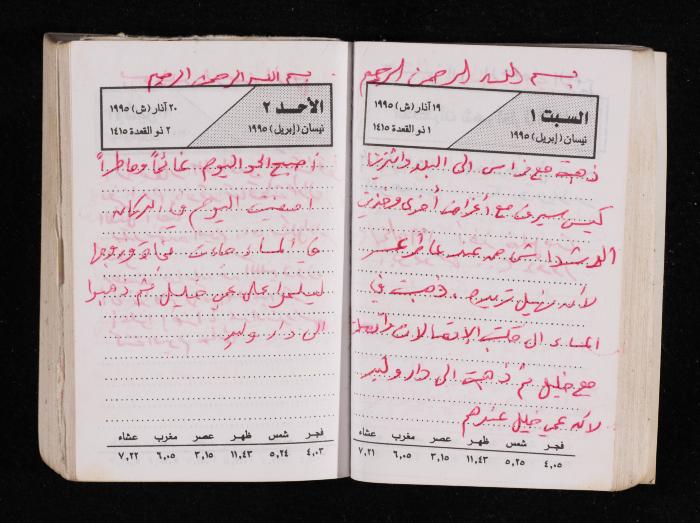 بسم الله الرحمن الرحيم
السبت ١
١٩ آذار (ش) ١٩٩٥
نيسان (إبريل) ١٩٩٥
١ ذو القعدة ١٤١٥
ذهبت مع فراس الى البلد واشترينا
كيس سيرف مع أغراض أخرى وأخذت
من عند
لأنه نهيل تريده، ذهبت في
المساء الى مكتب الإتصالات
مع خليل ثم ذهبت الى دار وليد
لانه عمي خليل عندهم
فجر شمس ظهر عصر مغرب عشاء
٤,٠٥ ٥,٢٥ ١١,٤٣ ٣,١٥ ٦,٠٥ ٧,٢١
بسم الله الرحمن الرحيم
الأحد ٢
٢٠ آذار (ش) ١٩٩٥
نيسان (إبريل) ١٩٩٥
٢ ذو القعدة ١٤١٥
أصبح الجو اليوم غائماً وماطراً
أمضيت اليوم في
في المساء جاءت وزوجها
ليسلموا على عمي خليل ثم ذهبوا
الى دار وليد
فجر شمس ظهر عصر مغرب عشاء
٤,٠٣ ٥,٢٤ ١١,٤٣ ٣,١٥ ٦,٠٥ ٧,٢٢